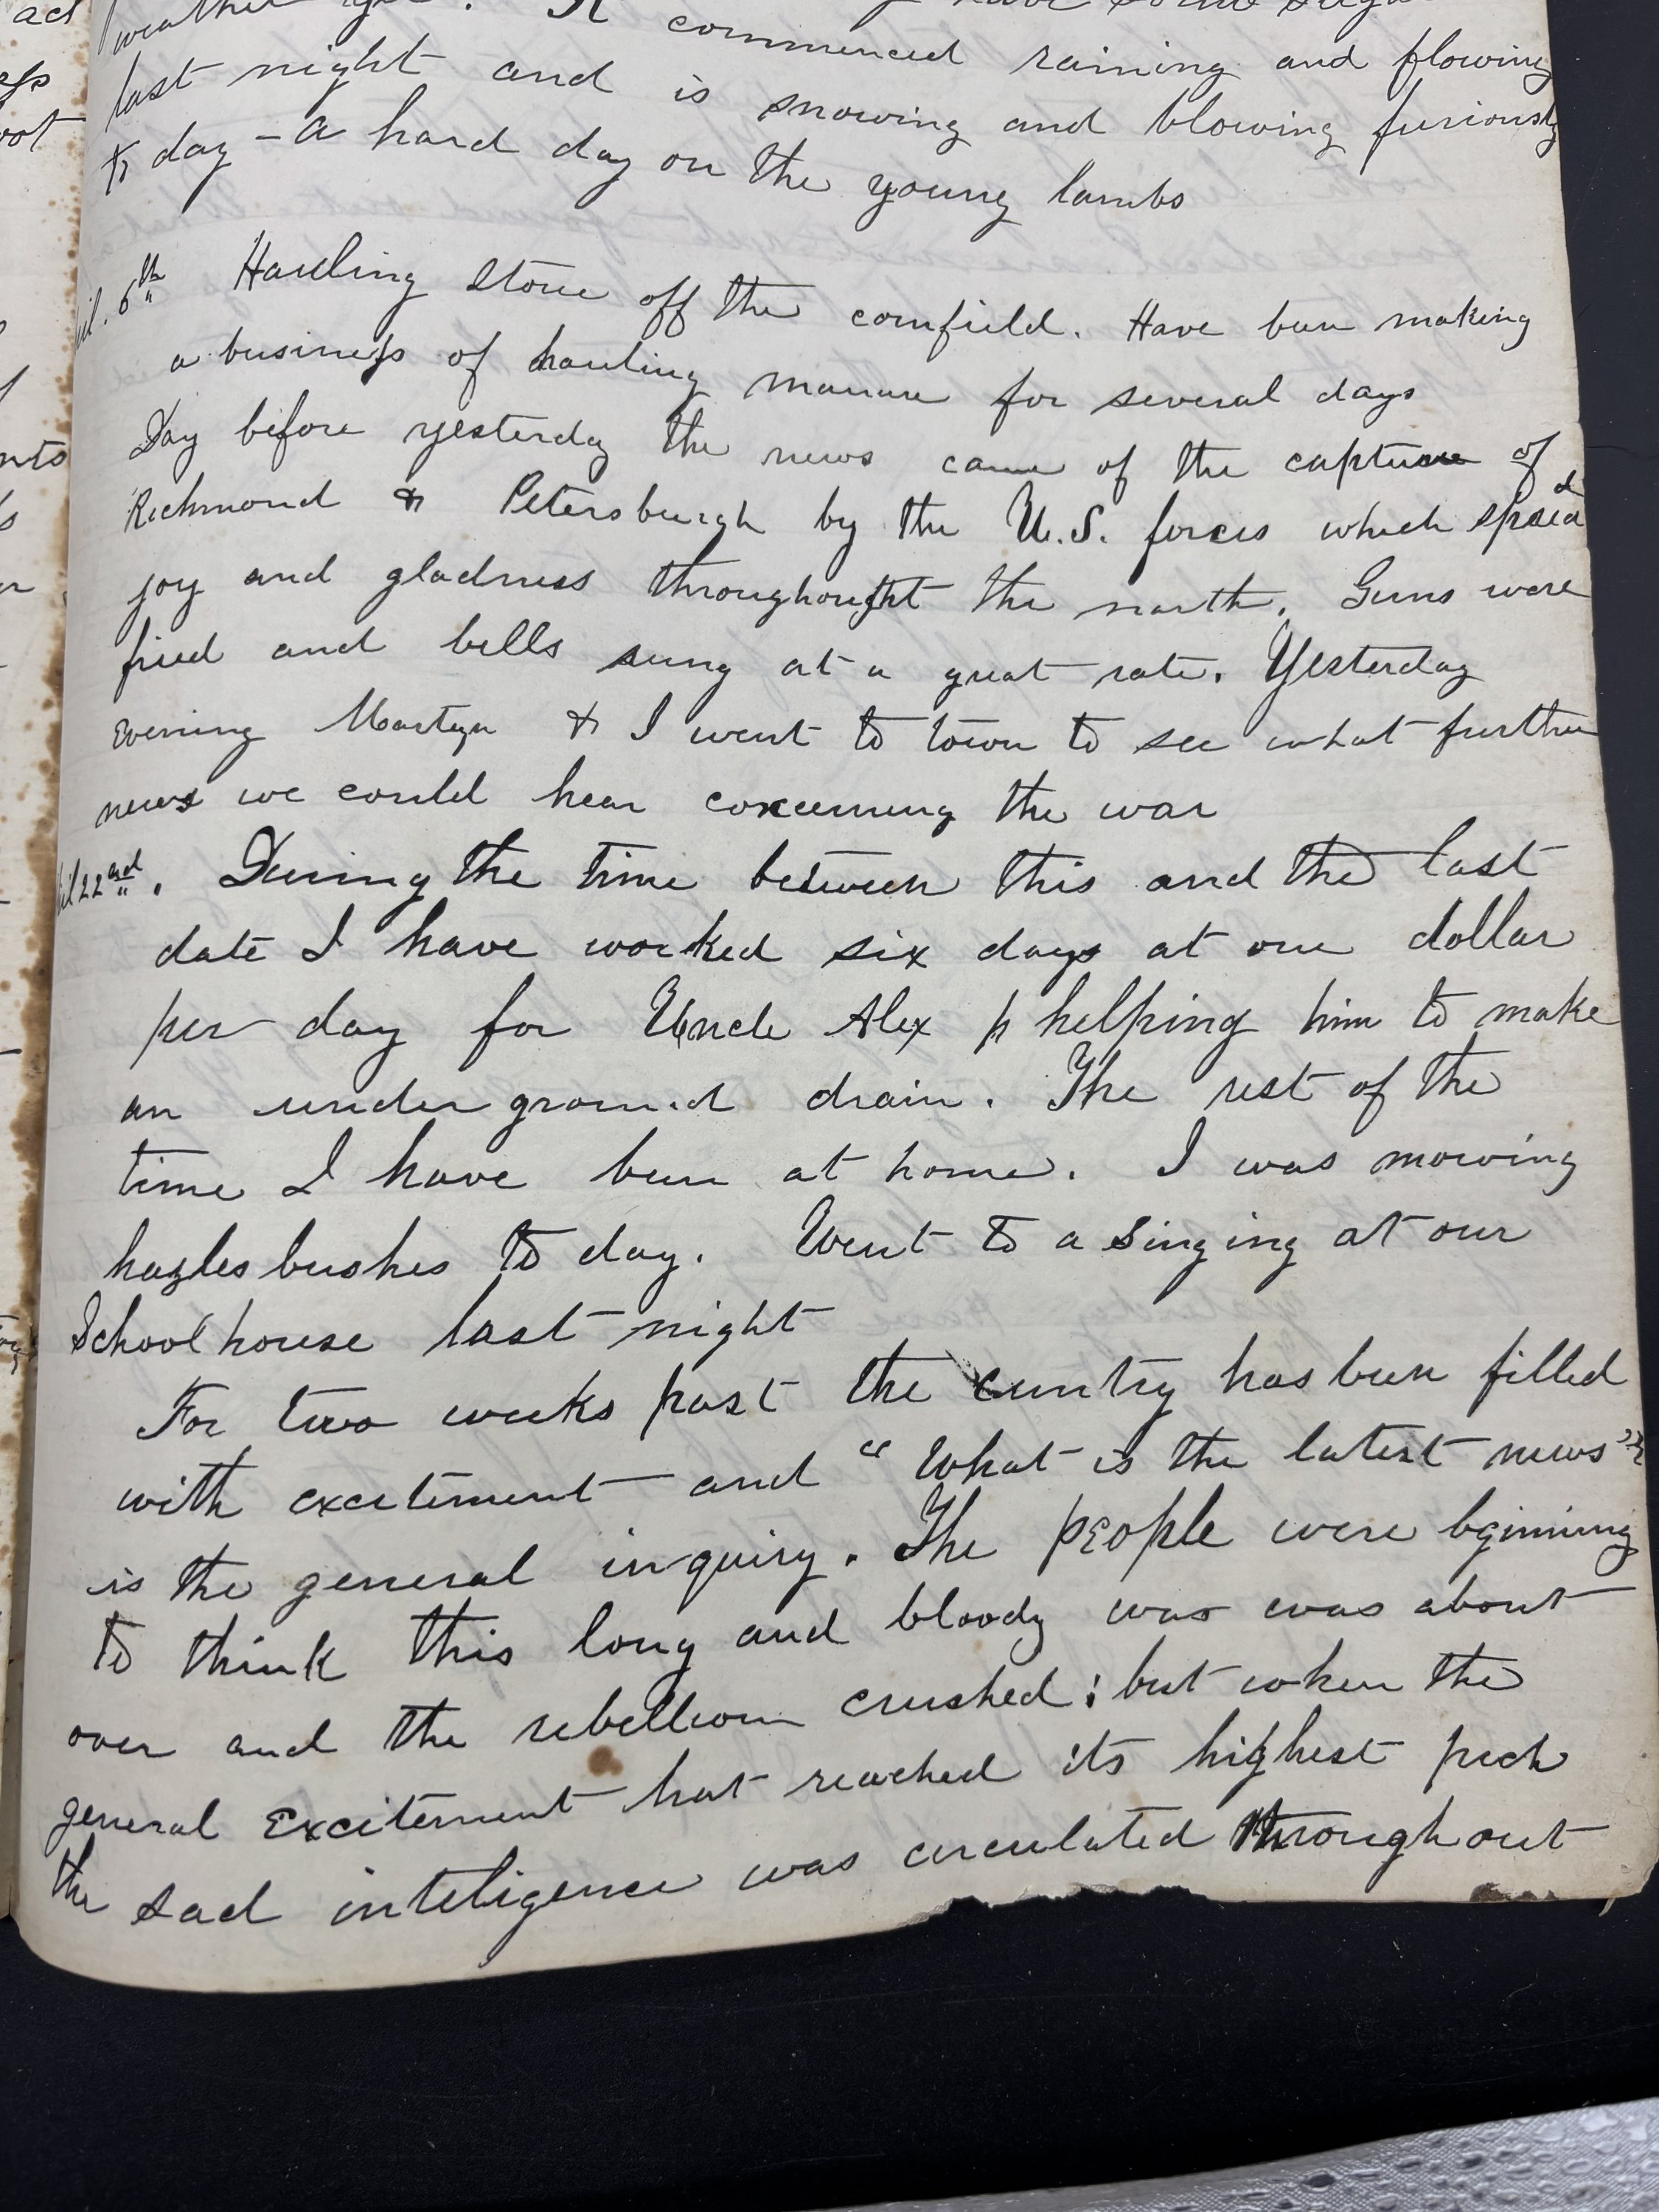 weather yet. It commenced raining and flowing
last night and is snowing and blowing furiously
to day – a hard day on the young lambs
il. 6th Hauling stone off the cornfield. Have been making
a business of hauling manure for several days
Day before yesterday the news came of the capture of
Richmond & Petersburgh by the U.S. forces which spread
joy and gladness throughought the north. Guns were
fried and bells rung at a great rate. Yesterday
evening Martyn & I went to town to see what further
news we could hear concerning the war
il 22nd. During the time between this and the last
date I have worked six days at one dollar
per day for Uncle Alex helping him to make
an under ground drain. The rest of the
time I have been at home. I was mowing
hazles bushes to day. Went to a singing at our
School house last night
For two weeks past the cuntry has been filled
with excitement and "What is the latest news"?
is the general inquiry. The people were bginning
to think this long and bloody war was about
over and the rebellion crushed; but when the
general Excitement hat reached its highest pech
the sad inteligence was circulated throughout